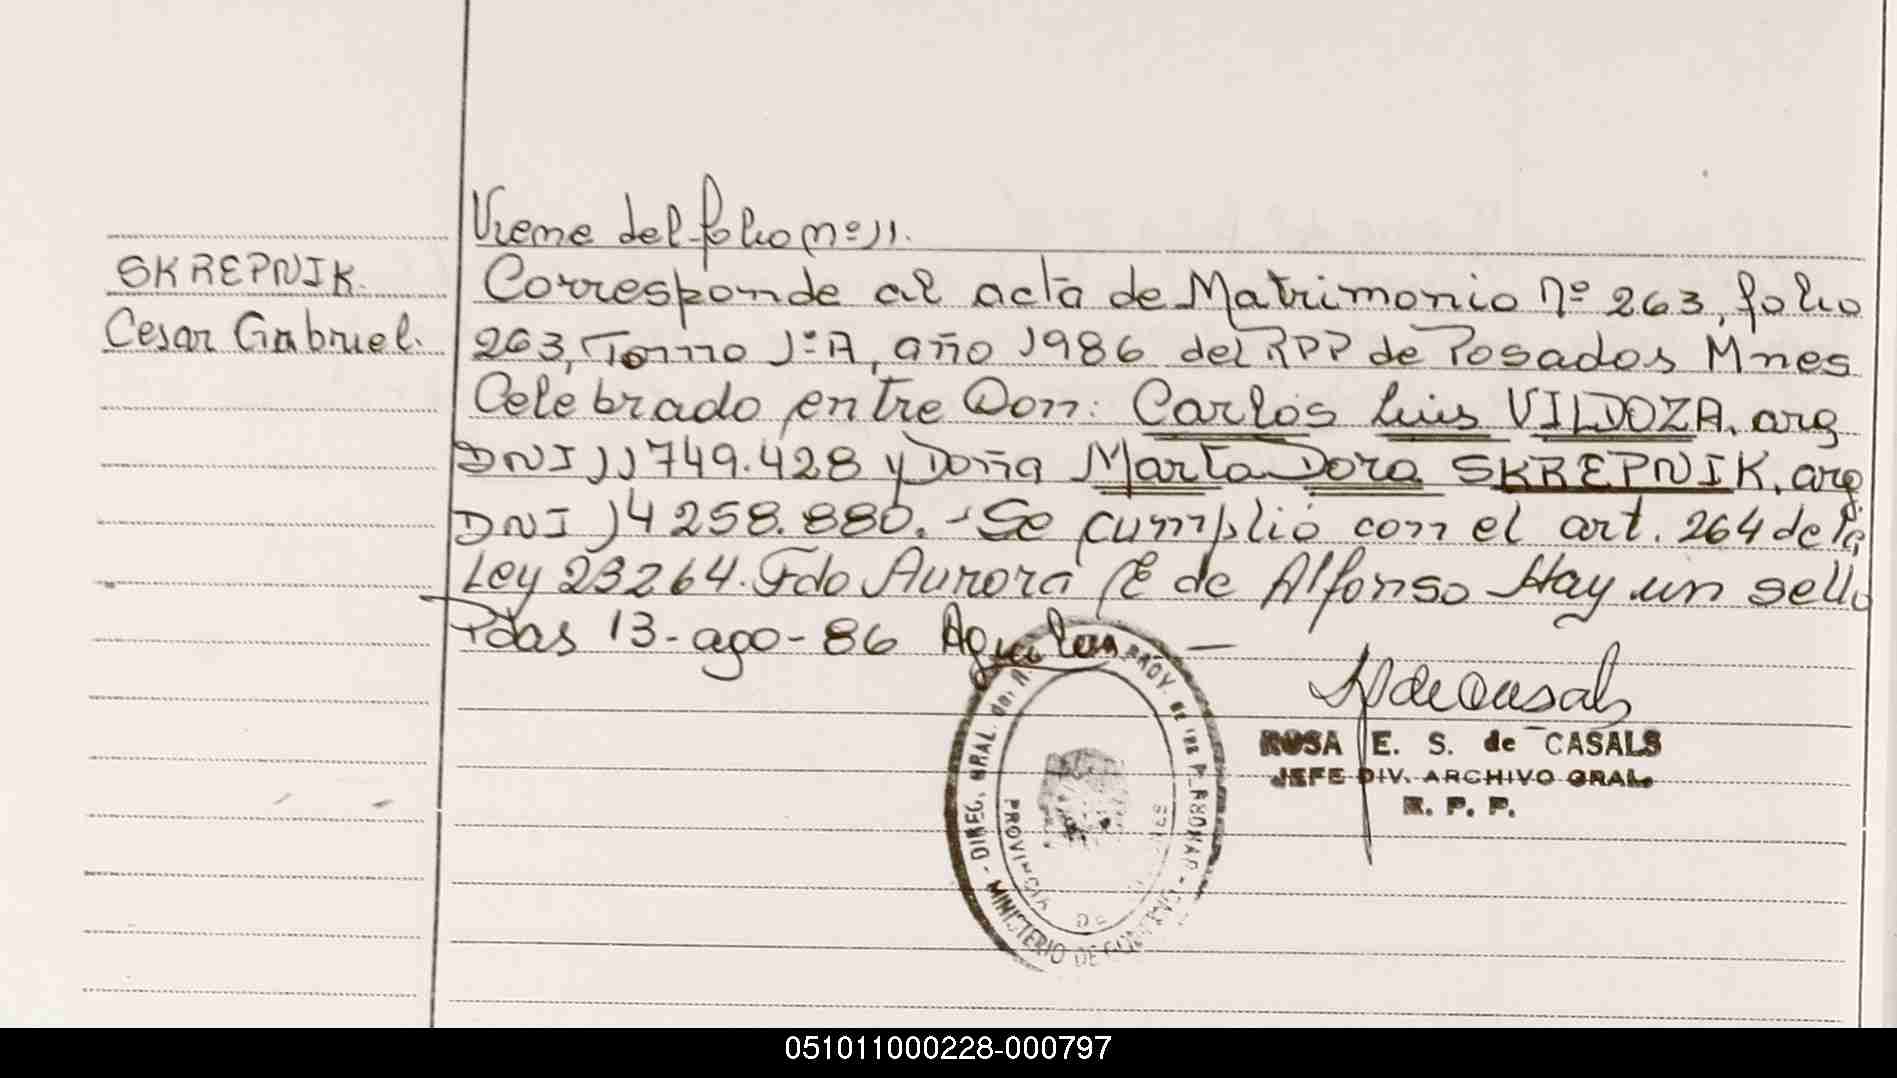 Viene del folio nº 11.
SKREPNIK.
Cesar Gabriel.
Corresponde al acta de Matrimonio nº 263, folio
263, Tomo 1ºA, año 1986 del RPP de Posadas Mnes
Celebrado entre Don: Carlos Luis VILDOZA. arg
DNI 11749.428 y Doña Marta Dora SKREPNIK. arg
DNI 14258.880.- Se cumplió con el art. 264 de la
Ley 23264. Fdo Aurora E de Alfonso Hay un sello
Pdas 13-ago-86 Aguilar —
de Casals
ROSA E. S. de CASALS
JEFE DIV. ARCHIVO GRAL.
R. P. P.
- DIREC. GRAL. PROV. DE LAS PERSONAS -
MINISTERIO DE GOBIERNO
PROVINCIA DE
051011000228-000797